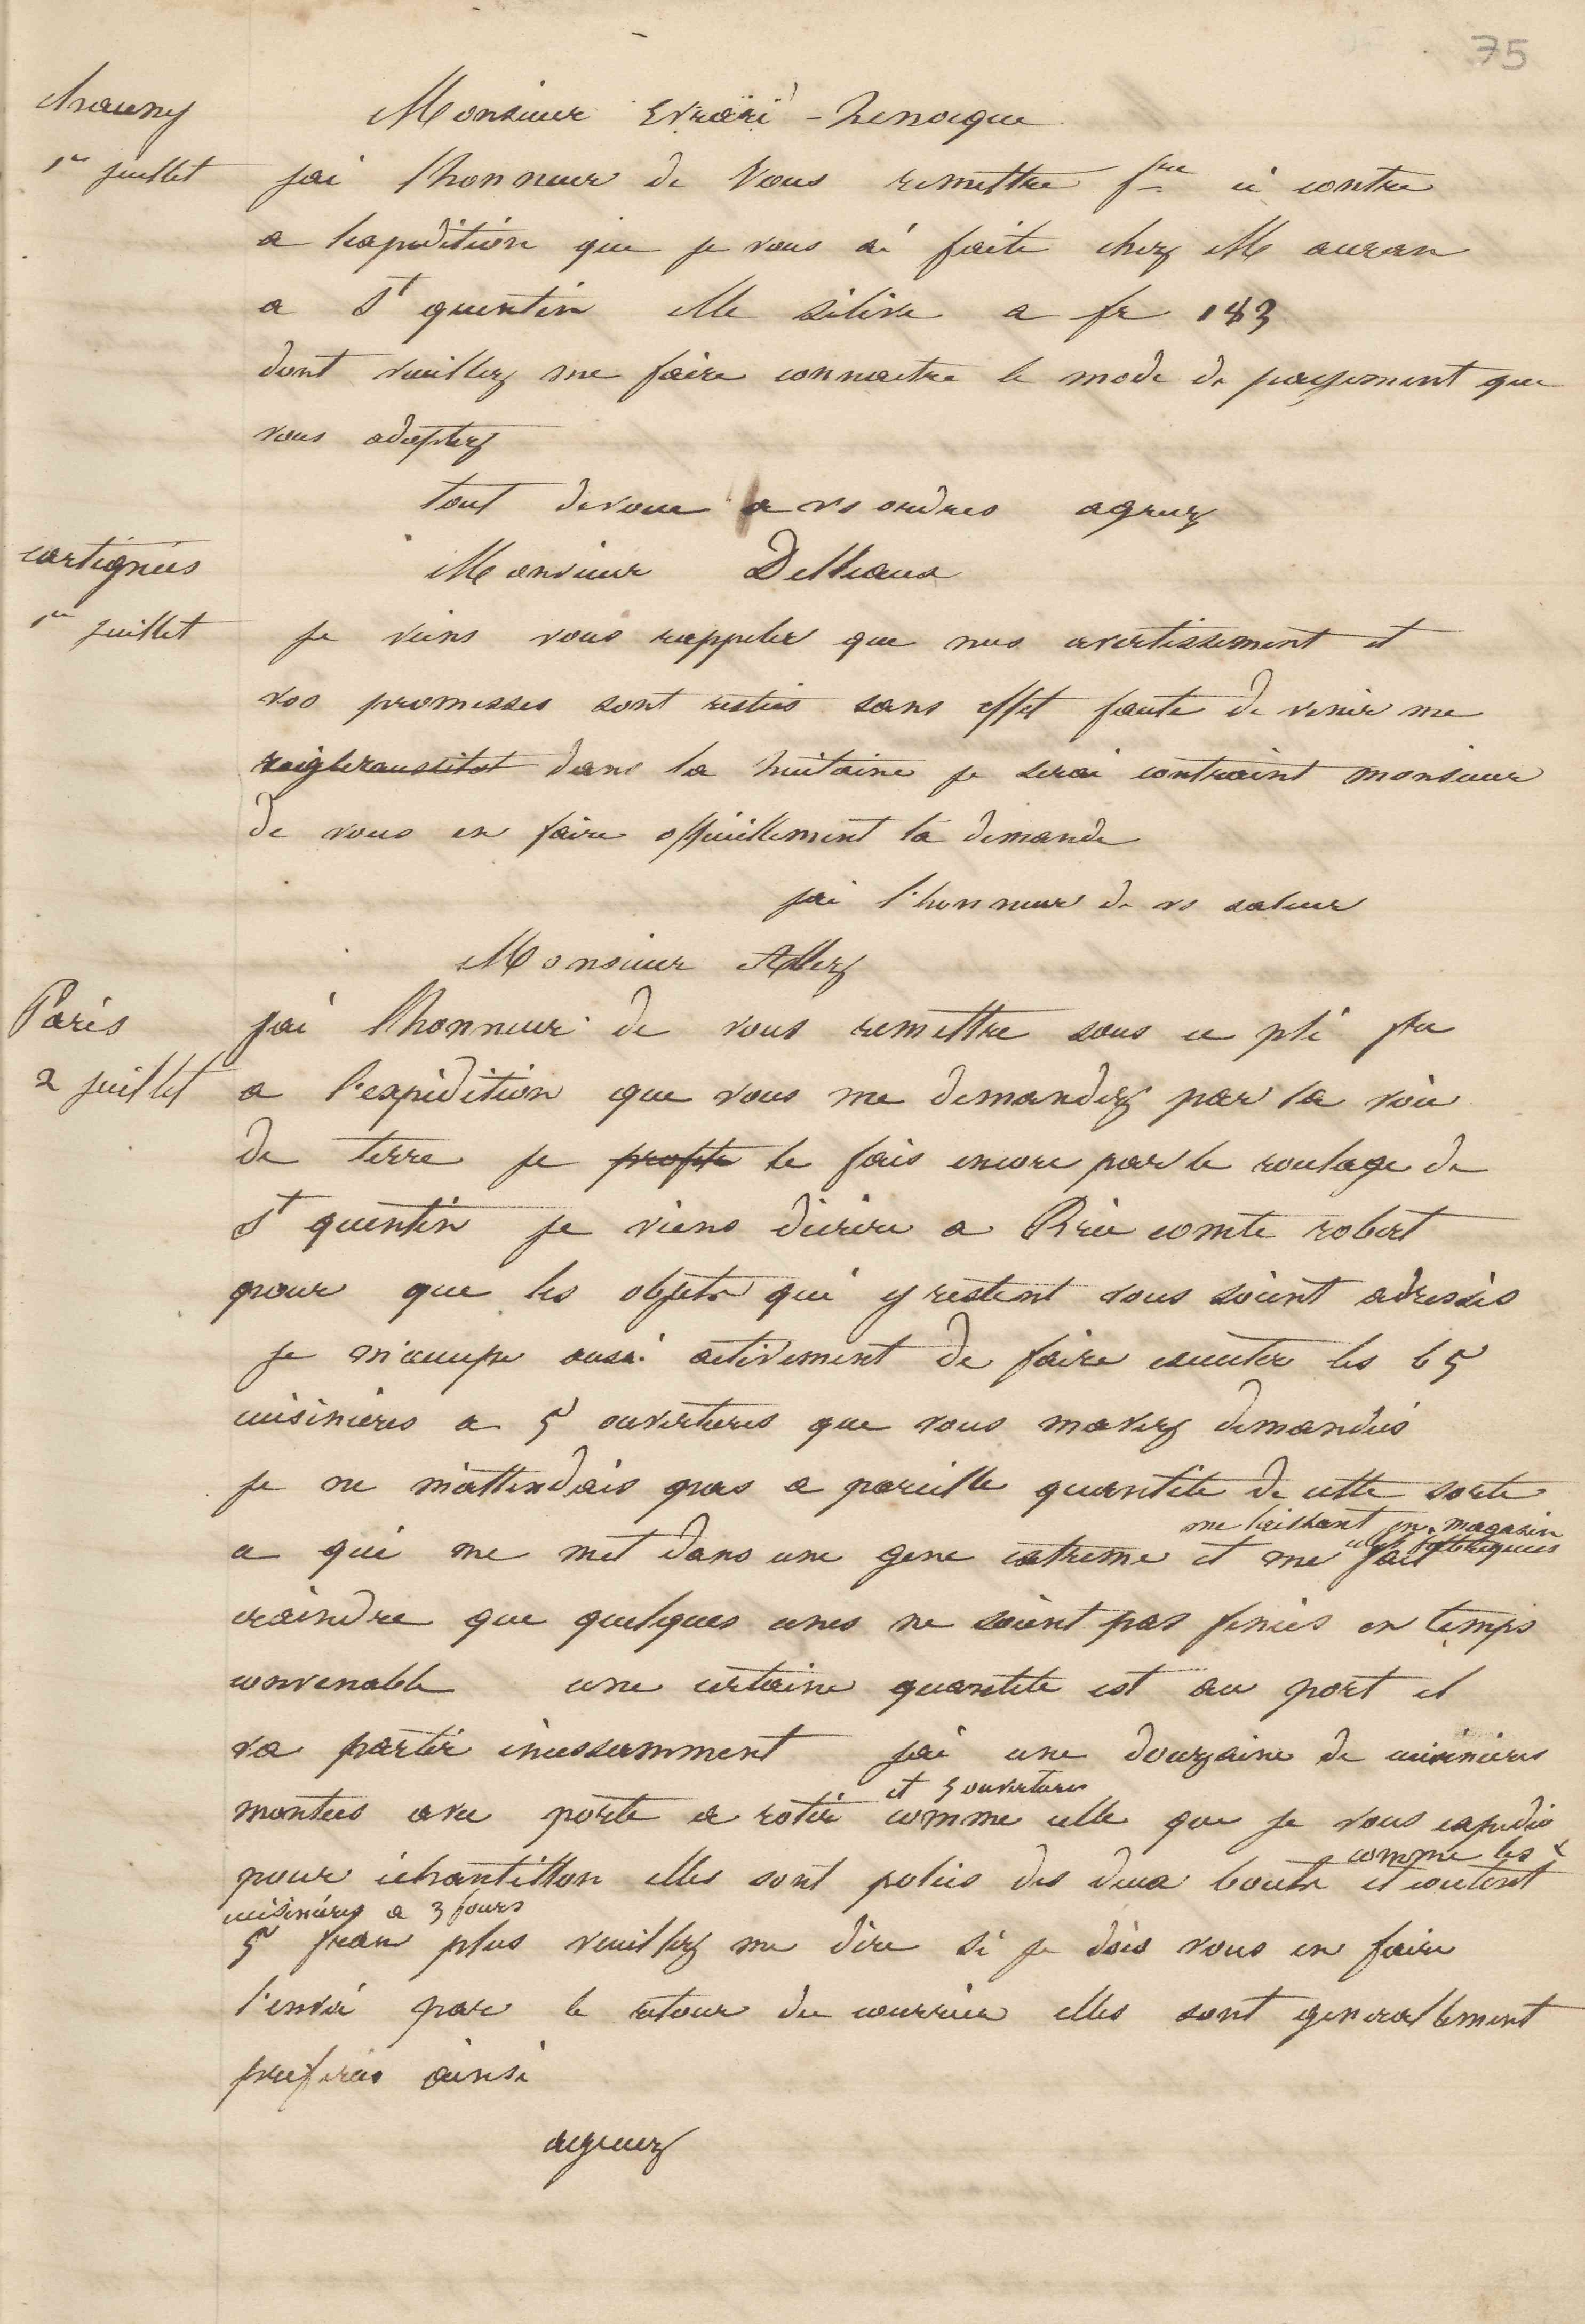 75
chauny
1er juillet
Monsieur Evrard - henocque
jai lhonneur de Vous remettre fre ci contre
a lexpedition que je vous ai faite chez M auran
a St quentin elle séleve a fr 183
dont veuillez me faire connaitre le mode de payement que
vous adoptez
tout devoué a vs ordres agreez
cartignies
1er juillet
Monsieur Delleaux
je viens vous rappeler que mes avertissement et
vos promesses sont restées sans effet faute de venir me
dans la huitaine je serai contraint monsieur
de vous en faire officiellement la demande
jai l'honneur de vs saluer
Monsieur Allez
Paris
2 juillet
jai lhonneur de vous remettre sous ce pli fre
a l'expédition que vous me demandez par la voie
de terre je profite le fais encore par le roulage de
St quentin je viens décrire a Brie comte robert
pour que les objets qui y restent vous soient adressés
je m'occupe aussi activement de faire executer les 65
cuisinieres a 5 ouvertures que vous mavez demandées
je ne m'attendais pas a pareille quantite de cette sorte
me laissant en magasin
celles fabriquées
a qui me met dans une gene extreme et me fait
craindre que quelques unes ne soient pas finies en temps
convenable une certaine quantité est au port et
va partir incessamment jai une douzaine de cuisinieres
et 5 ouvertures
montees avec porte a rotir comme celle que je vous expedie
comme les
pour échantillon elles sont polies des deux bouts et coutent
cuisinieres a 3 fours
5 franc plus veuillez me dire si je dois vous en faire
l'envoi par le retour du courrier elles sont generallement
preferées ainsi
agreez